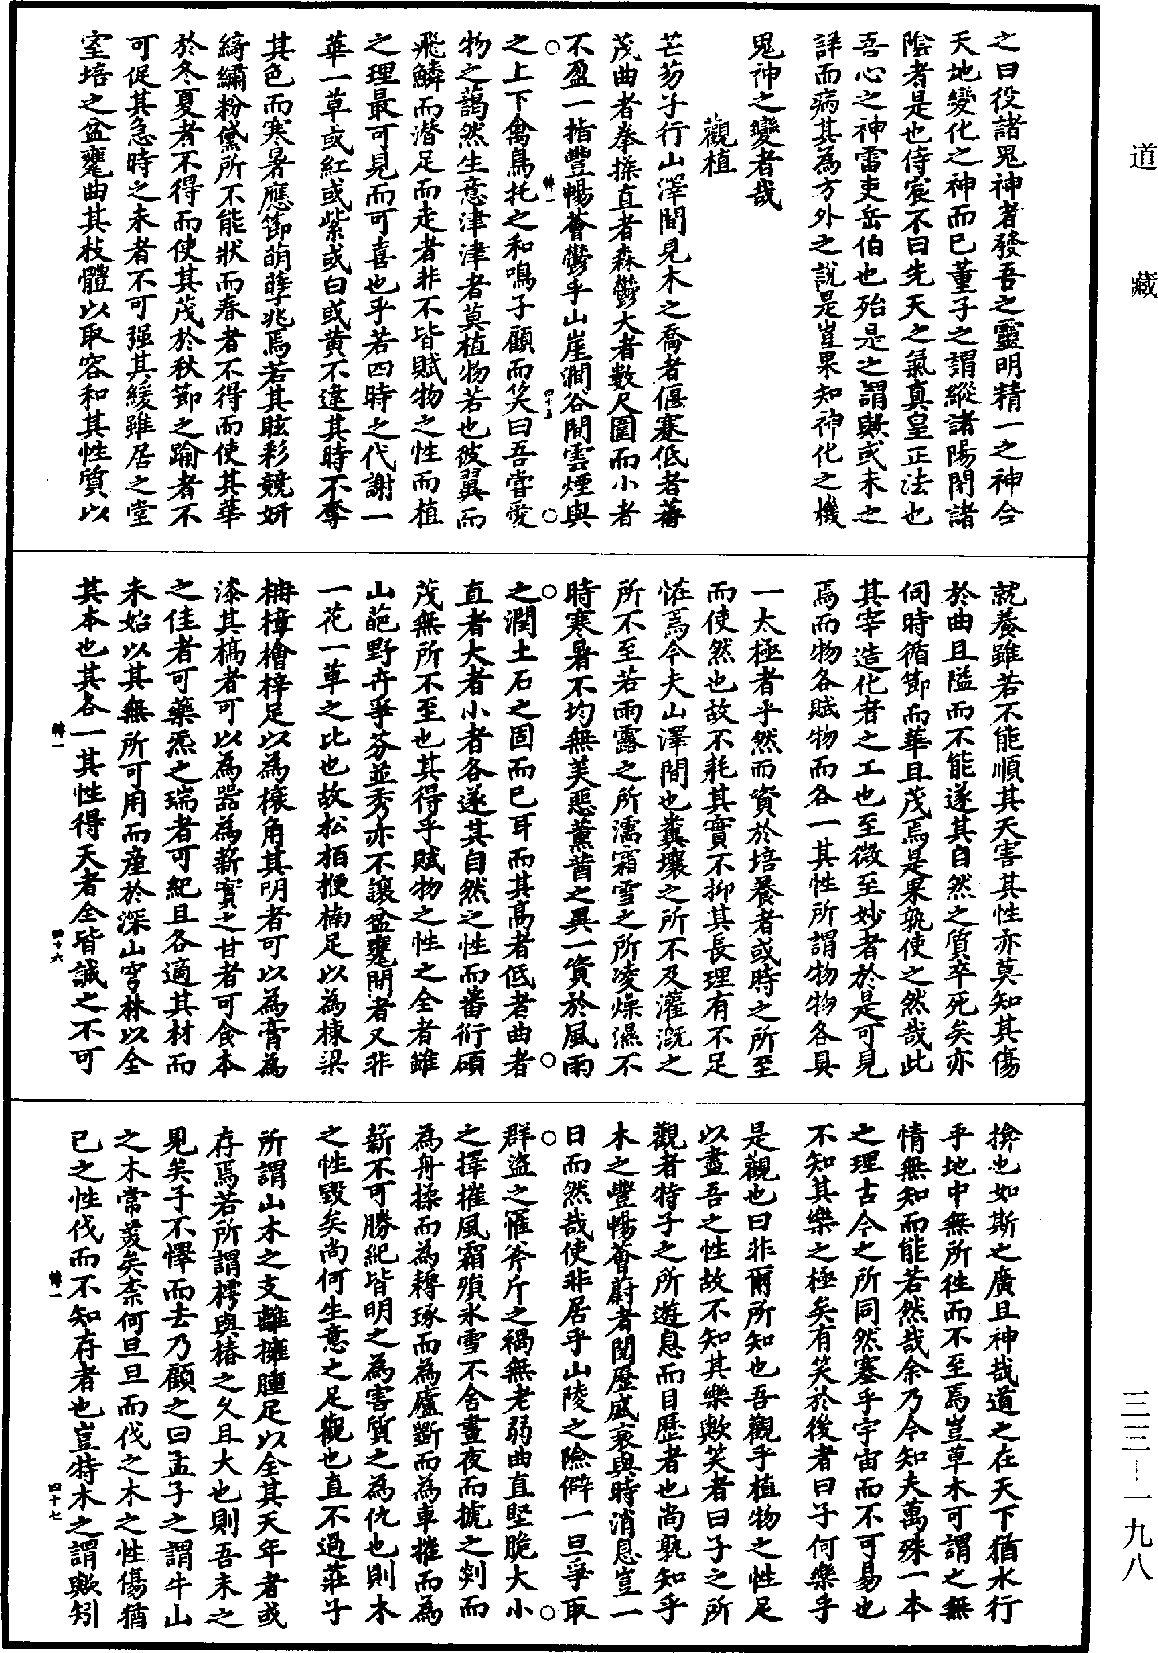 道藏
之曰役諸鬼神者發吾之靈明精一之神合
天地變化之神而已董子之謂縱諸陽閉諸
陰者是也侍宸不曰先天之氣真皇正法也
吾心之神雷吏岳伯也殆是之謂歟或未之
詳而病其為方外之說是豈果知神化之機
鬼神之變者哉
觀植
芒芴子行山澤間見木之喬者偃蹇低者蕃
茂曲者拳揉直者森鬱大者數尺圍而小者
不盈一指豐暢薈鬱乎山崖澗谷間雲煙與
之上下禽鳥托之和鳴子顧而笑曰吾嘗愛
物之藹然生意津津者莫植物若也彼翼而
飛鱗而潛足而走者非不皆賦物之性而植
之理最可見而可喜也乎若四時之代謝一
華一草或紅或紫或白或黃不違其時不奪
其色而寒暑應節萌孽兆焉若其眩彩競妍
綺繡粉黛所不能狀而春者不得而使其華
於冬夏者不得而使其茂於秋節之踰者不
可促其急時之未者不可强其緩雖居之堂
室培之盆甕曲其枝體以取容和其性質以
就養雖若不能順其天害其性亦莫知其傷
於曲且隘而不能遂其自然之質卒死矣亦
伺時循節而華且茂焉是果孰使之然哉此
其宰造化者之工也至微至妙者於是可見
焉而物各賦物而各一其性所謂物物各具
一太極者乎然而資於培養者或時之所至
而使然也故不耗其實不抑其長理有不足
恠焉今夫山澤間也糞壤之所不及灌溉之
所不至若雨露之所濡霜雪之所凌燥濕不
時寒暑不均無美惡薰蕕之異一資於風雨
之潤土石之固而已耳而其高者低者曲者
直者大者小者各遂其自然之性而蕃衍碩
茂無所不至也其得乎賦物之性之全者雖
山葩野卉爭芬並秀亦不讓盆甕間者又非
一花一草之比也故松栢楩楠足以為棟梁
枏樟檜梓足以為榱角其明者可以為膏為
漆其槁者可以為器為薪實之甘者可食本
之佳者可藥炁之瑞者可紀且各適其材而
未始以其無所可用而產於深山窮林以全
其本也其各一其性得天者全皆誠之不可
揜也如斯之廣且神哉道之在天下猶水行
乎地中無所往而不至焉豈草木可謂之無
情無知而能若然哉余乃今知夫萬殊一本
之理古今之所同然塞乎宇宙而不可易也
不知其樂之極矣有笑於後者曰子何樂乎
是觀也曰非爾所知也吾觀乎植物之性足
以盡吾之性故不知其樂歟笑者曰子之所
觀者特子之所遊息而目歷者也尚孰知乎
木之豐暢薈蔚者閱歷盛衰與時消息豈一
日而然哉使非居乎山陵之險僻一旦爭取
群盜之罹斧斤之禍無老弱曲直堅脆大小
之擇摧風霜殞氷雪不舍晝夜而摭之剡而
為舟揉而為耨琢而為廬斷而為車摧而為
薪不可勝紀皆明之為害質之為仇也則木
之性毀矣尚何生意之足觀也直不過莊子
所謂山木之支離擁腫足以全其天年者或
存焉若所謂樗與椿之久且大也則吾未之
見矣子不懌而去乃顧之曰孟子之謂牛山
之木常羙矣奈何旦旦而伐之木之性傷猶
己之性伐而不知存者也豈特木之謂歟矧
轉一 四十五
轉一 四十六
轉一 四十七
三三—一九八